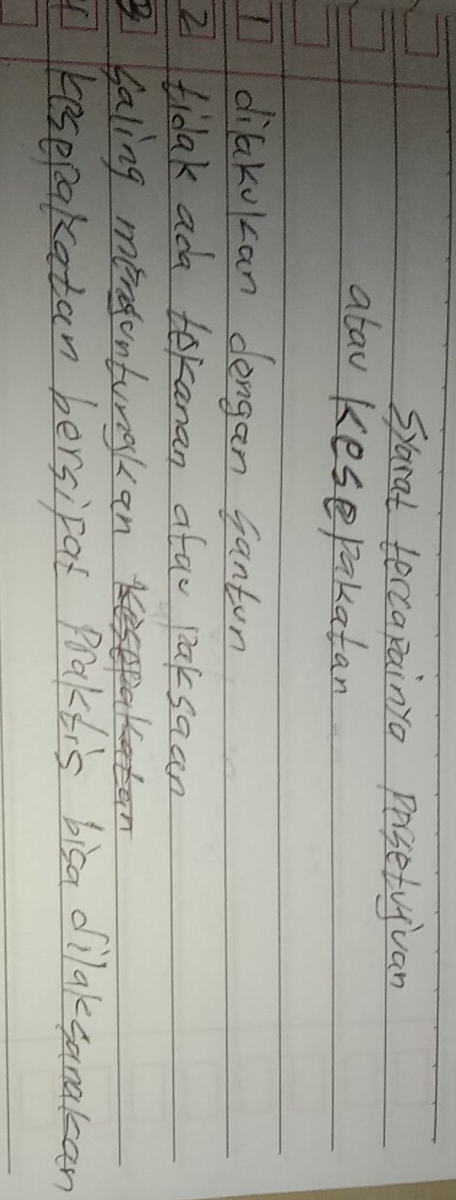 Syarat tercapainya Persetujuan
atau kesepakatan
1 dilakukan dengan santun
2 tidak ada tekanan atau paksaan
3 saling menguntungkan kesepakatan
4 kesepakatan bersifat Praktis bisa dilaksanakan